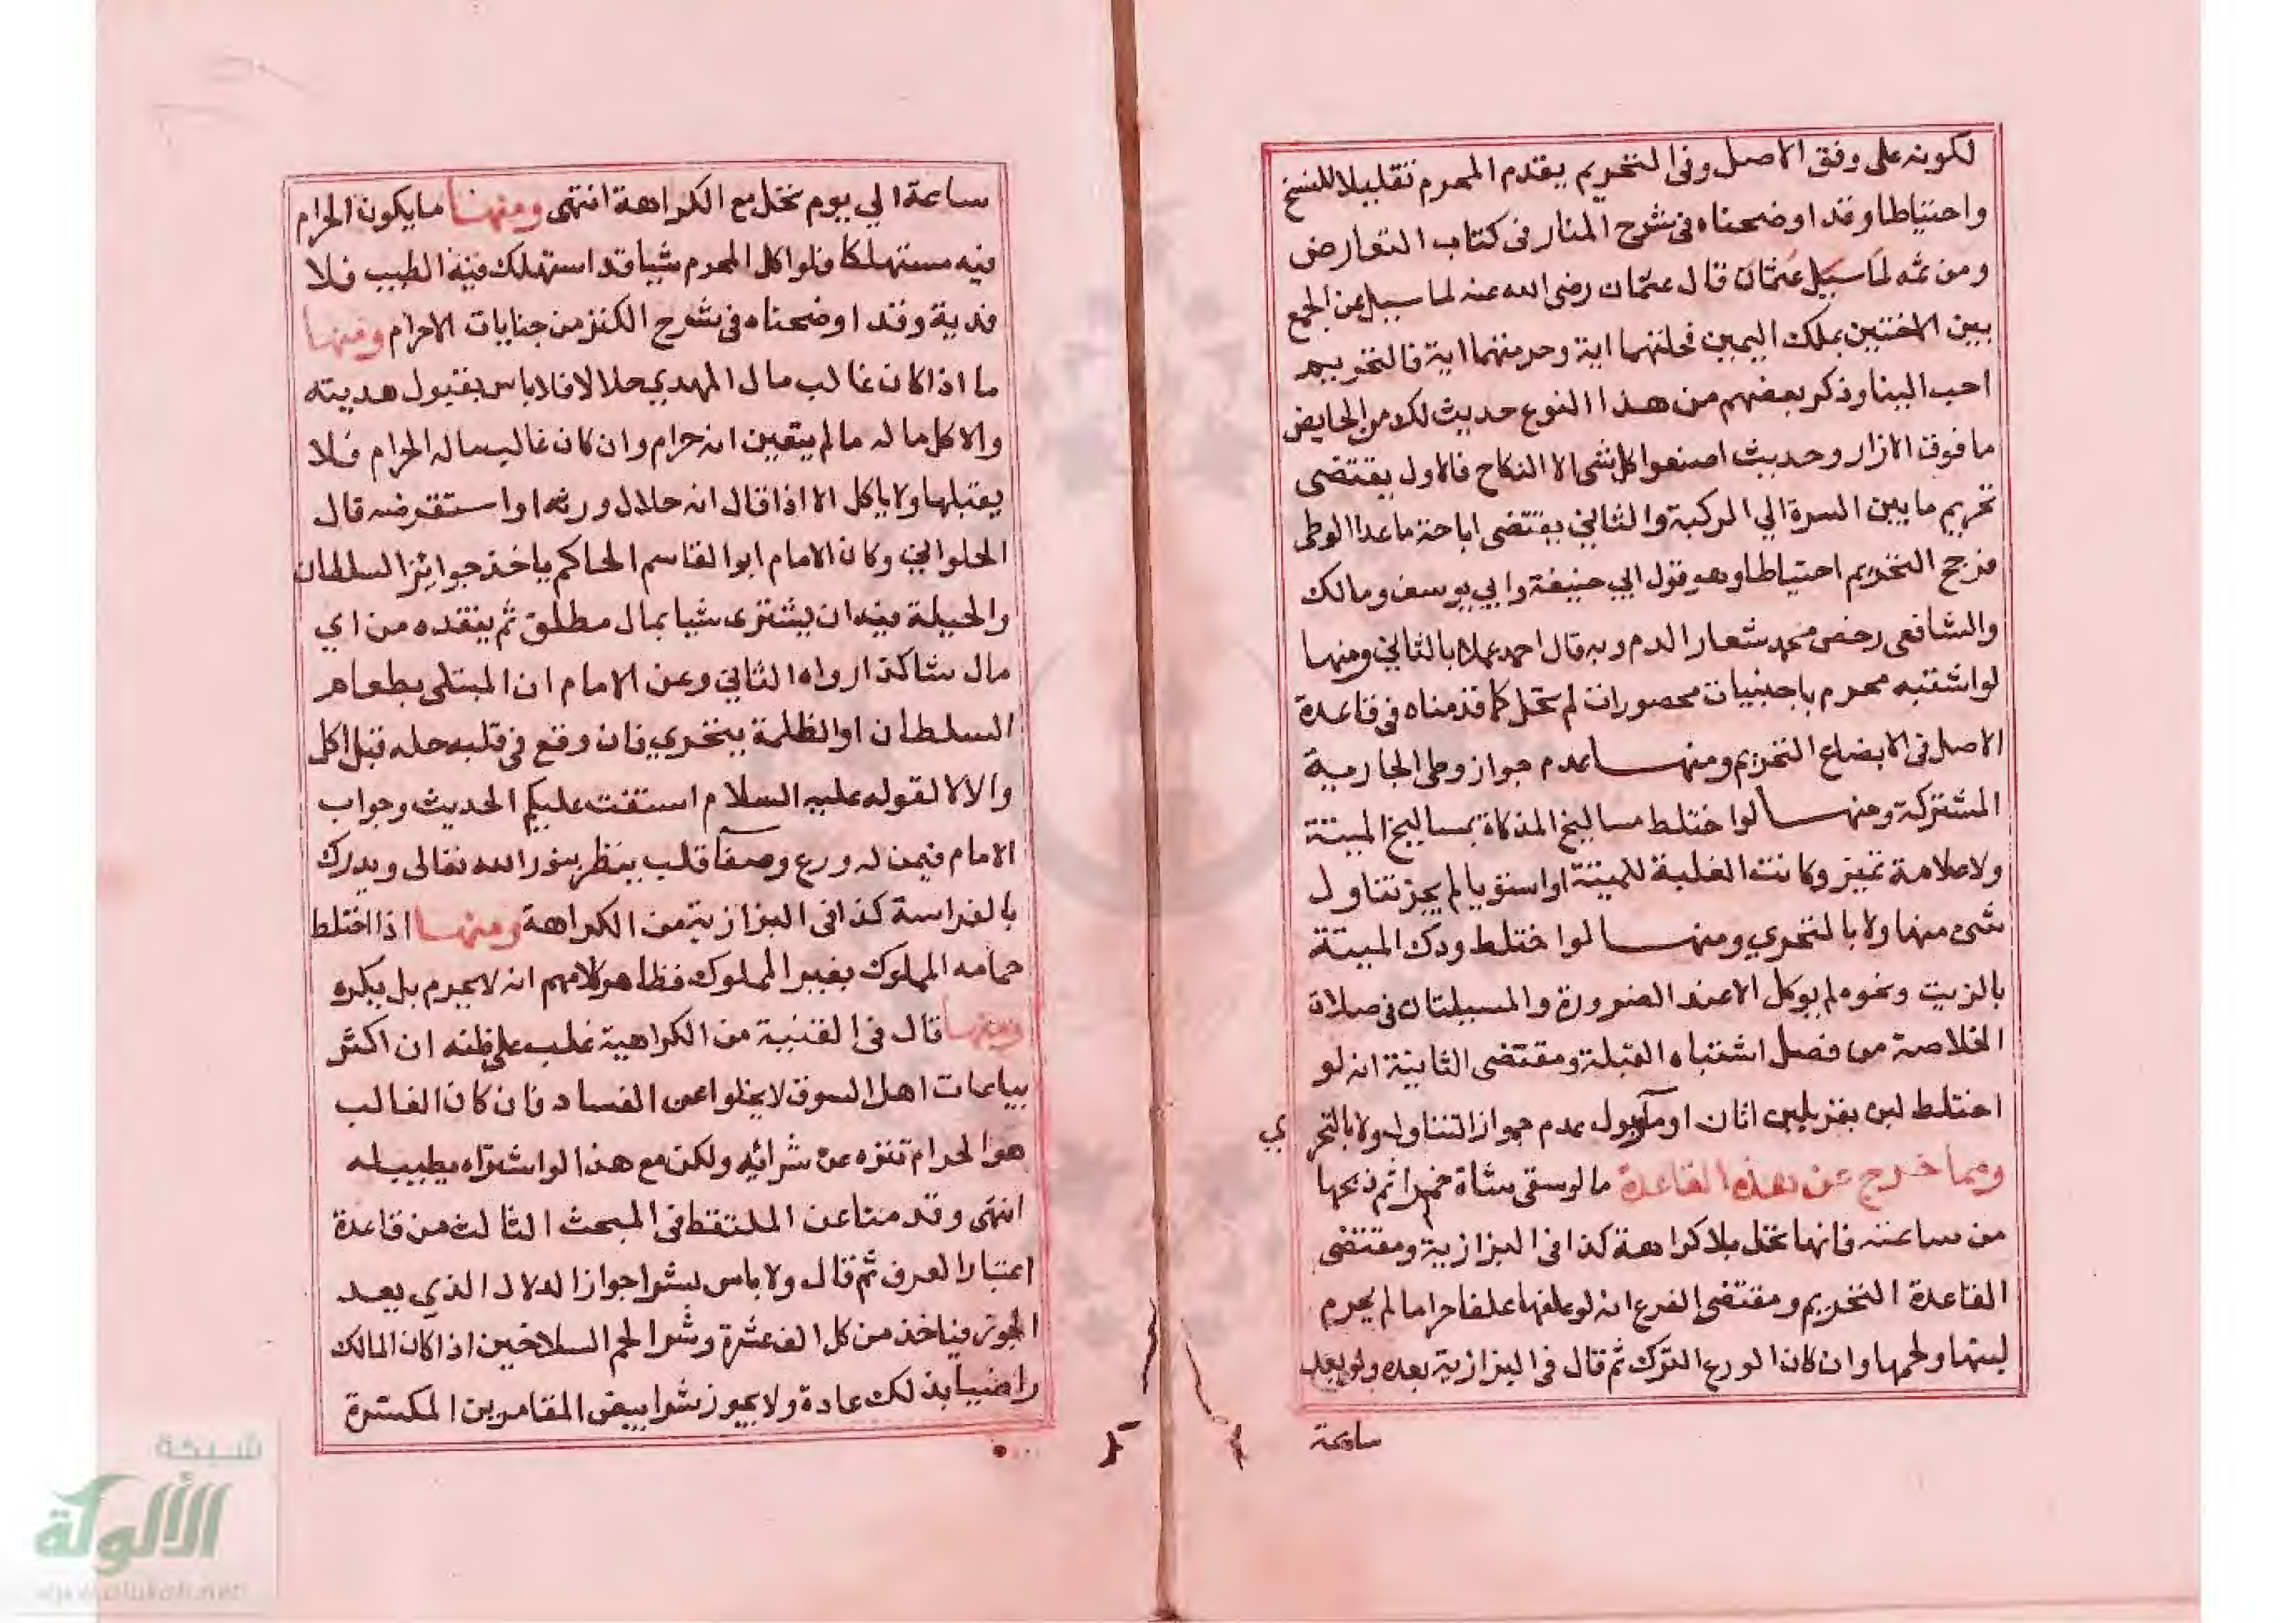 لكونه على وفق الاصل وفى التحريم يقدم المحرم تقليلا للنسخ
واحتياطا وقد اوضحناه فى شرح المنار فى كتاب التعارض
ومن ثمه لما سيل عثمان قال عثمان رضى الله عنه لما سيل عن الجمع
بين الاختين بملك اليمين فحلتهما اية وحرمتهما اية فالتحريم
احب الينا وذكر بعضهم من هذا النوع حديث لك من الحايض
ما فوق الازار وحديث اصنعوا كل شى الا النكاح فالاول يقتضى
تحريم ما بين السرة الي الركبة والثاني يقتضى اباحة ما عدا الوطى
فرجح التحريم احتياطا وهو قول ابي حنيفة وابي يوسف ومالك
والشافعى رخص محمد شعار الدم وبه قال احمد عملا بالثاني ومنها
لو اشتبه محرم باجنبيات محصورات لم تحل كما قدمناه فى قاعدة
الاصل فى الابضاع التحريم ومنها عدم جواز وطى الجارية
المشتركة ومنها لو اختلط مساليخ المذكاة بمساليخ الميتة
ولا علامة تميز وكانت الغلبة للميتة او استويا لم يجز تناول
شى منها ولا بالتحري ومنها لو اختلط ودك الميتة
بالزيت ونحوه لم يوكل الا عند الضرورة والمسيلتان فى صلاة
الخلاصة من فصل اشتباه القبلة ومقتضى الثانية انه لو
اختلط لبن بقر بلبن اتان او ماء وبول عدم جواز التناول ولا بالتحري
ومما خرج عن هذه القاعدة ما لو سقى شاة خمرا ثم ذبحها
من ساعته فانها تحل بلا كراهة كذا فى البزازية ومقتضى
القاعدة التحريم ومقتضى الفرع انه لو علفها علفا حراما لم يحرم
لبنها ولحمها وان كان الورع الترك ثم قال فى البزازية بعده ولو بعد
ساعة
ساعة الي يوم تحل مع الكراهة انتهى ومنها ما يكون الحرام
فيه مستهلكا فلو اكل المحرم شيا قد استهلك فيه الطيب فلا
فدية وقد اوضحناه فى شرح الكنز من جنايات الاحرام ومنها
ما اذا كان غالب مال المهدي حلالا فلا باس بقبول هديته
والاكل ما له ما لم يتعين انه حرام وان كان غالب ماله الحرام فلا
يقبلها ولا ياكل الا اذا قال انه حلال ورثه او استقرضه قال
الحلواني وكان الامام ابو القاسم الحاكم ياخذ جوائز السلطان
والحيلة فيه ان يشترى شيا بمال مطلق ثم ينقده من اي
مال شا كذا رواه الثاني وعن الامام ان المبتلى بطعام
السلطان او الظلمة يتحري فان وقع فى قلبه حله قبل اكل
والا لا لقوله عليه السلام استفت عليكم الحديث وجواب
الامام فيمن له ورع وصفآ قلب ينظر بنور الله تعالى ويدرك
بالفراسة كذا فى البزازية من الكراهة ومنها اذا اختلط
حمامه المملوك بغير المملوك فظاهر كلامهم انه لا يحرم بل يكره
ومنها قال فى القنية من الكراهية غلب على ظنه ان اكثر
بياعات اهل السوق لا يخلوا عن الفساد فان كان الغالب
هو الحرام تنزه عن شرائه ولكن مع هذا لو اشتراه يطيب له
انتهى وقدمنا عن الملتقط فى المبحث الثالث من قاعدة
اعتبار العرف ثم قال ولا باس بشرا جواز الدلال الذي يعد
الجوز فياخذ من كل الف عشرة وشرا لحم السلاخين اذا كان المالك
راضيا بذلك عادة ولا يجوز شرا بيض المقامرين المكسرة
شبكة
الألوكة
www.alukah.net